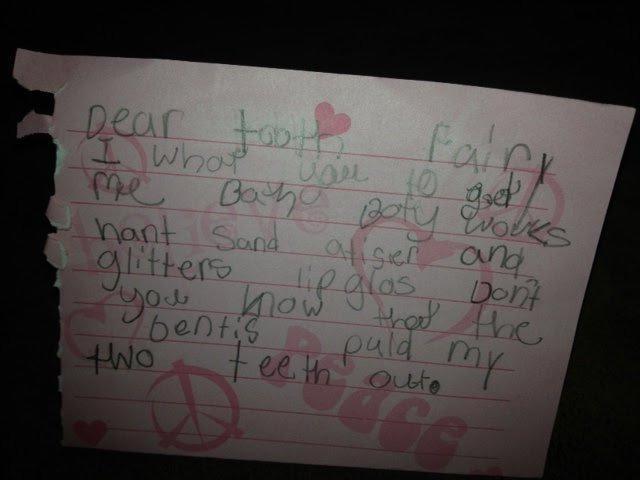 Dear tooth Fairy
I what you to get
me Bath Boty works
hant sand atiser and
glitters lip glos Don't
you know that the
bentis puld my
two teeth out.
Believe
Peace